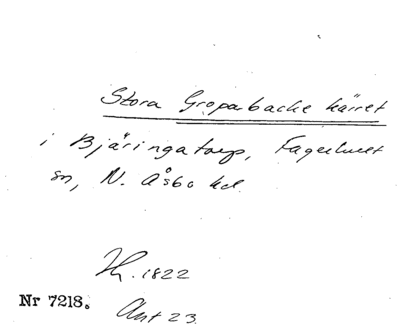 Stora Groparbacke kärret
i Bjäringatorp, Fagerhult
sn, N. Åsbo hd.
Hy. 1822
Nr 7218.
Akt 23.